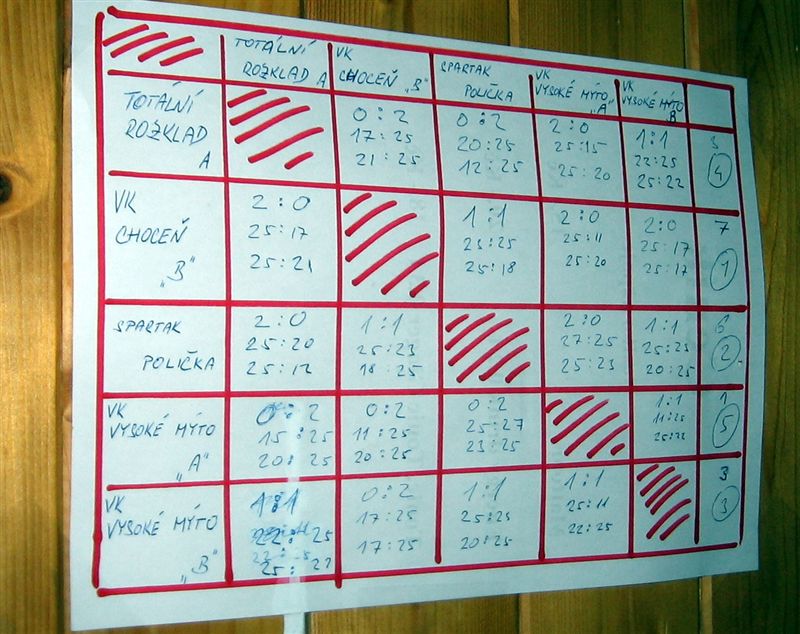 TOTÁLNÍ ROZKLAD A
VK CHOCEŇ „B"
SPARTAK POLIČKA
VK VYSOKÉ MÝTO „A"
VK VYSOKÉ MÝTO B
TOTÁLNÍ ROZKLAD A
0:2 17:25 21:25
0:2 20:25 12:25
2:0 25:15 25:20
1:1 22:25 25:22
4
VK CHOCEŇ „B"
2:0 25:17 25:21
1:1 25:18
2:0 25:11 25:20
2:0 25:17 25:17
7 1
SPARTAK POLIČKA
2:0 25:20 25:12
1:1 25:23 18:25
2:0 27:25 25:23
1:1 25:23 20:25
6 2
VK VYSOKÉ MÝTO „A"
0:2 15:25 20:25
0:2 11:25 20:25
0:2 25:27 23:25
1:1 11:25 25:22
1 5
VK VYSOKÉ MÝTO „B"
1:1 22:25 25:22
0:2 17:25 17:25
1:1 20:25
1:1 25:11 22:25
3 3